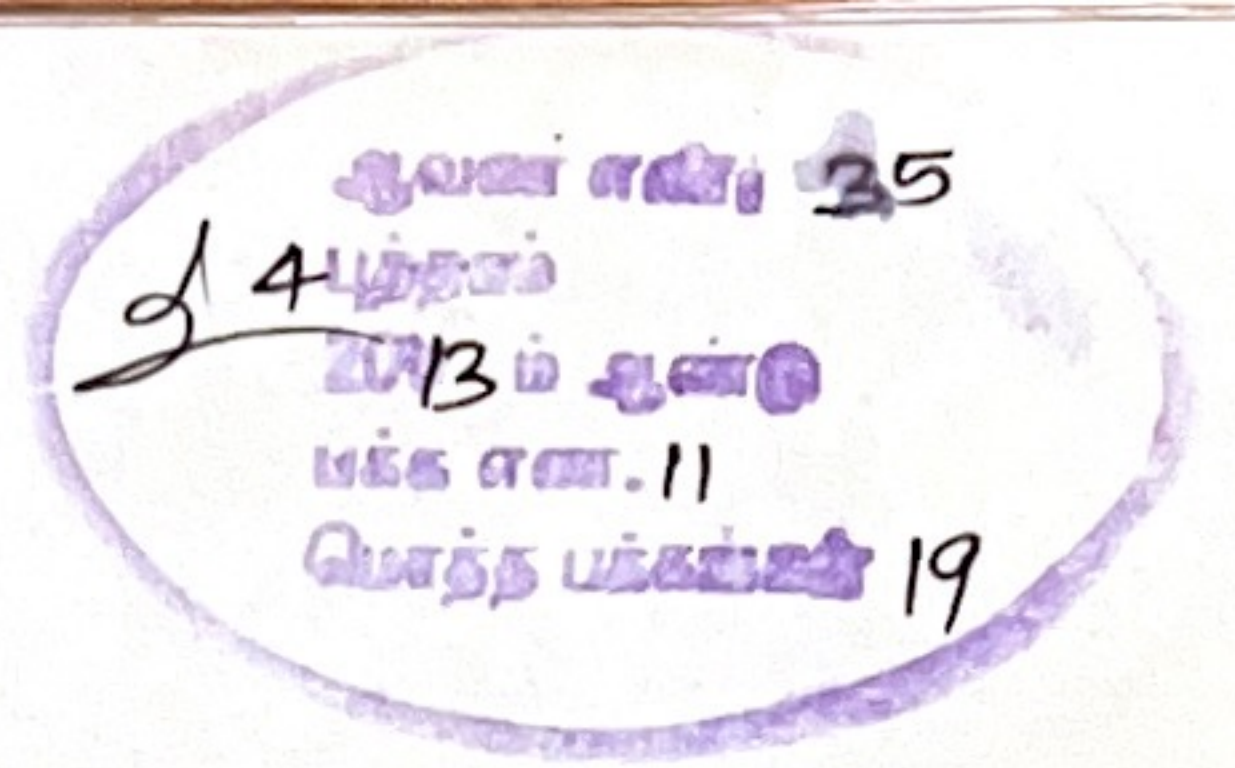 ஆவண எண்: 35
4 புத்தகம்
2013 ம் ஆண்டு
பக்க எண். 11
மொத்த பக்கங்கள் 19